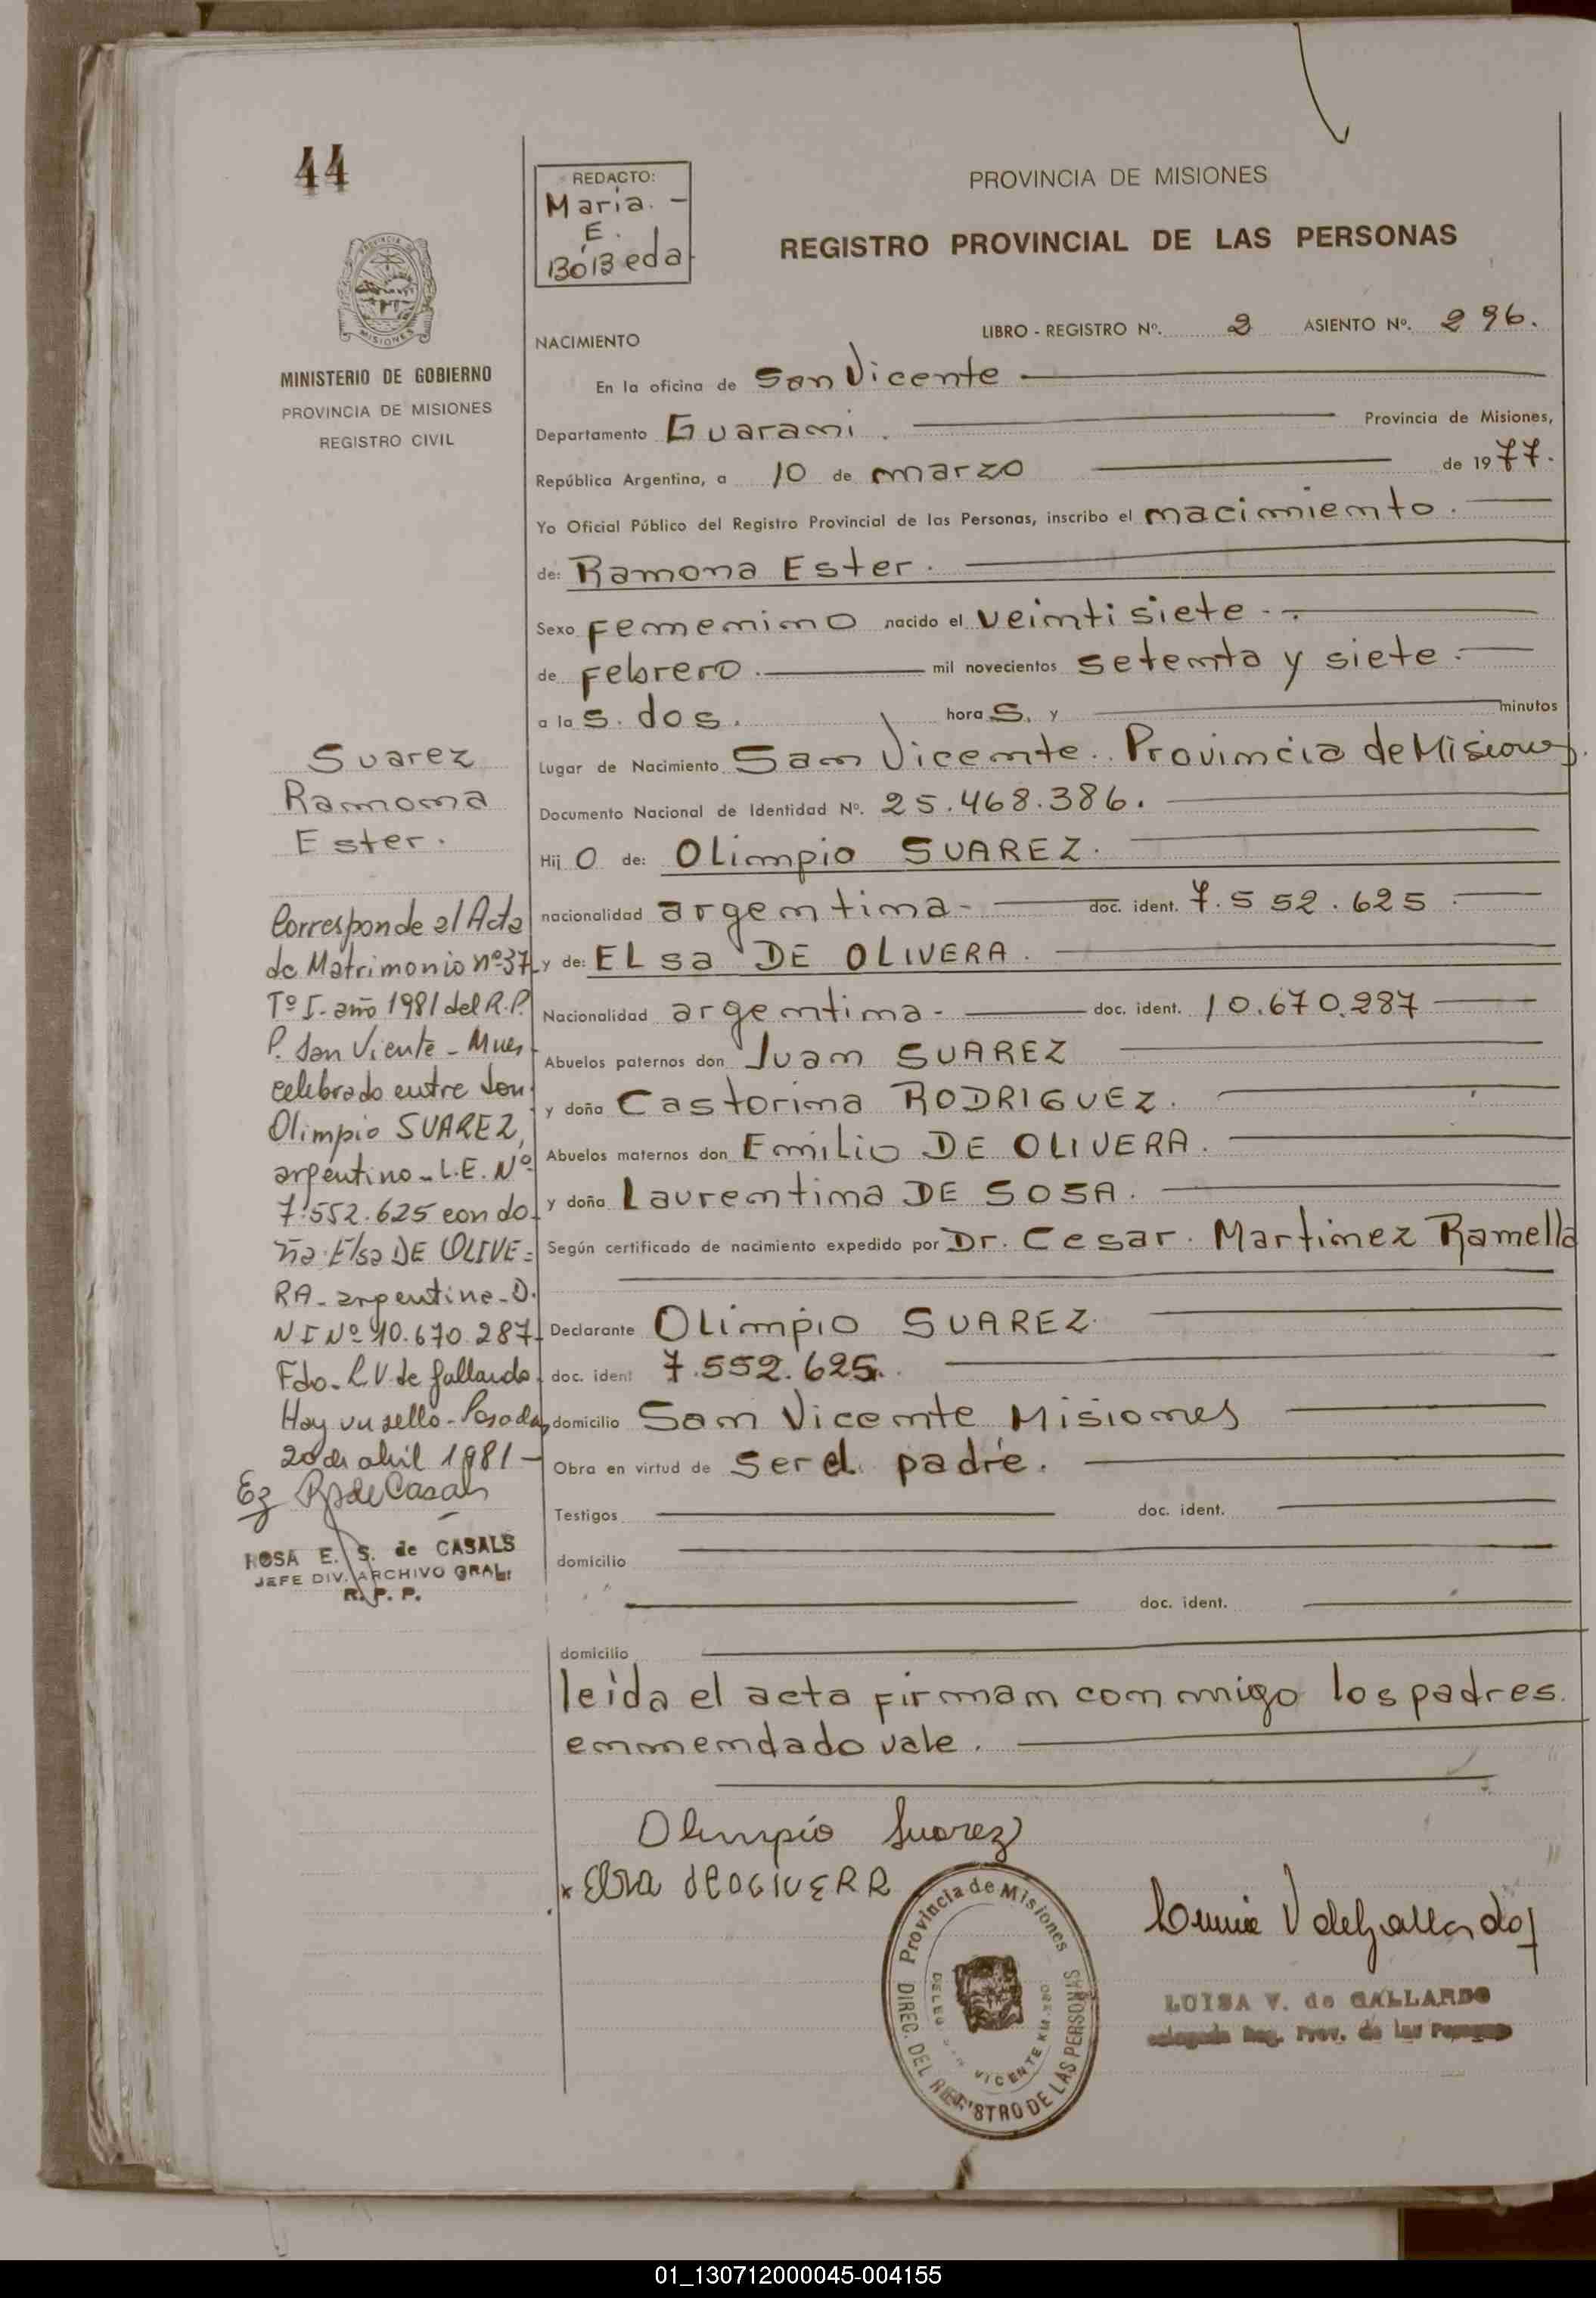 44
REDACTO:
Maria. -
E.
BóBeda
PROVINCIA DE MISIONES
REGISTRO PROVINCIAL DE LAS PERSONAS
PROVINCIA DE
MISIONES
MINISTERIO DE GOBIERNO
PROVINCIA DE MISIONES
REGISTRO CIVIL
NACIMIENTO
LIBRO - REGISTRO Nº. 2 ASIENTO Nº. 296.
En la oficina de San Vicente
Departamento Guarani. Provincia de Misiones,
República Argentina, a 10 de marzo de 1977.
Yo Oficial Público del Registro Provincial de las Personas, inscribo el nacimiento.
de: Ramona Ester.
Sexo femenino nacido el veintisiete - .
de febrero. mil novecientos setenta y siete.
a las. dos. horas. y minutos
Lugar de Nacimiento San Vicente. Provincia de Misiones.
Documento Nacional de Identidad Nº. 25.468.386.
Hijo de: Olimpio SUAREZ.
nacionalidad argentina- doc. ident. 7.552.625
y de: Elsa DE OLIVERA.
Nacionalidad argentina- doc. ident. 10.670.287
Abuelos paternos don Juan SUAREZ
y doña Castorina RODRIGUEZ.
Abuelos maternos don Emilio DE OLIVERA.
y doña Laurentina DE SOSA.
Según certificado de nacimiento expedido por Dr. Cesar. Martinez Ramella
Declarante Olimpio SUAREZ.
doc. ident 7.552.625.
domicilio San Vicente Misiones
Obra en virtud de ser el padre.
Testigos doc. ident.
domicilio
doc. ident.
domicilio
leida el acta firman conmigo los padres.
enmendado vale.
Suarez
Ramona
Ester.
Corresponde al Acta
de Matrimonio nº 37
Tº I- año 1981 del R.P.
P. San Viente - Mnes-
celebrado entre don
Olimpio SUAREZ,
argentino - L.E. Nº
7.552.625 con do-
ña Elsa DE OLIVE=
RA- argentina - D.
N I Nº 10.670.287-
Fdo- L V de Gallardo
Hay un sello - Posadas
20 de abril 1981 -
ROSA E. S. de CASALS
JEFE DIV. ARCHIVO GRAL.
R. P. P.
Olimpio Suarez
x Elsa deOLIVERA
Provincia de Misiones
DIREC. DEL REGISTRO DE LAS PERSONAS
VICENTE KM.
Luisa V de Gallardo
LUISA V. de GALLARDO
Delegada Reg. Prov. de las Personas
01_130712000045-004155